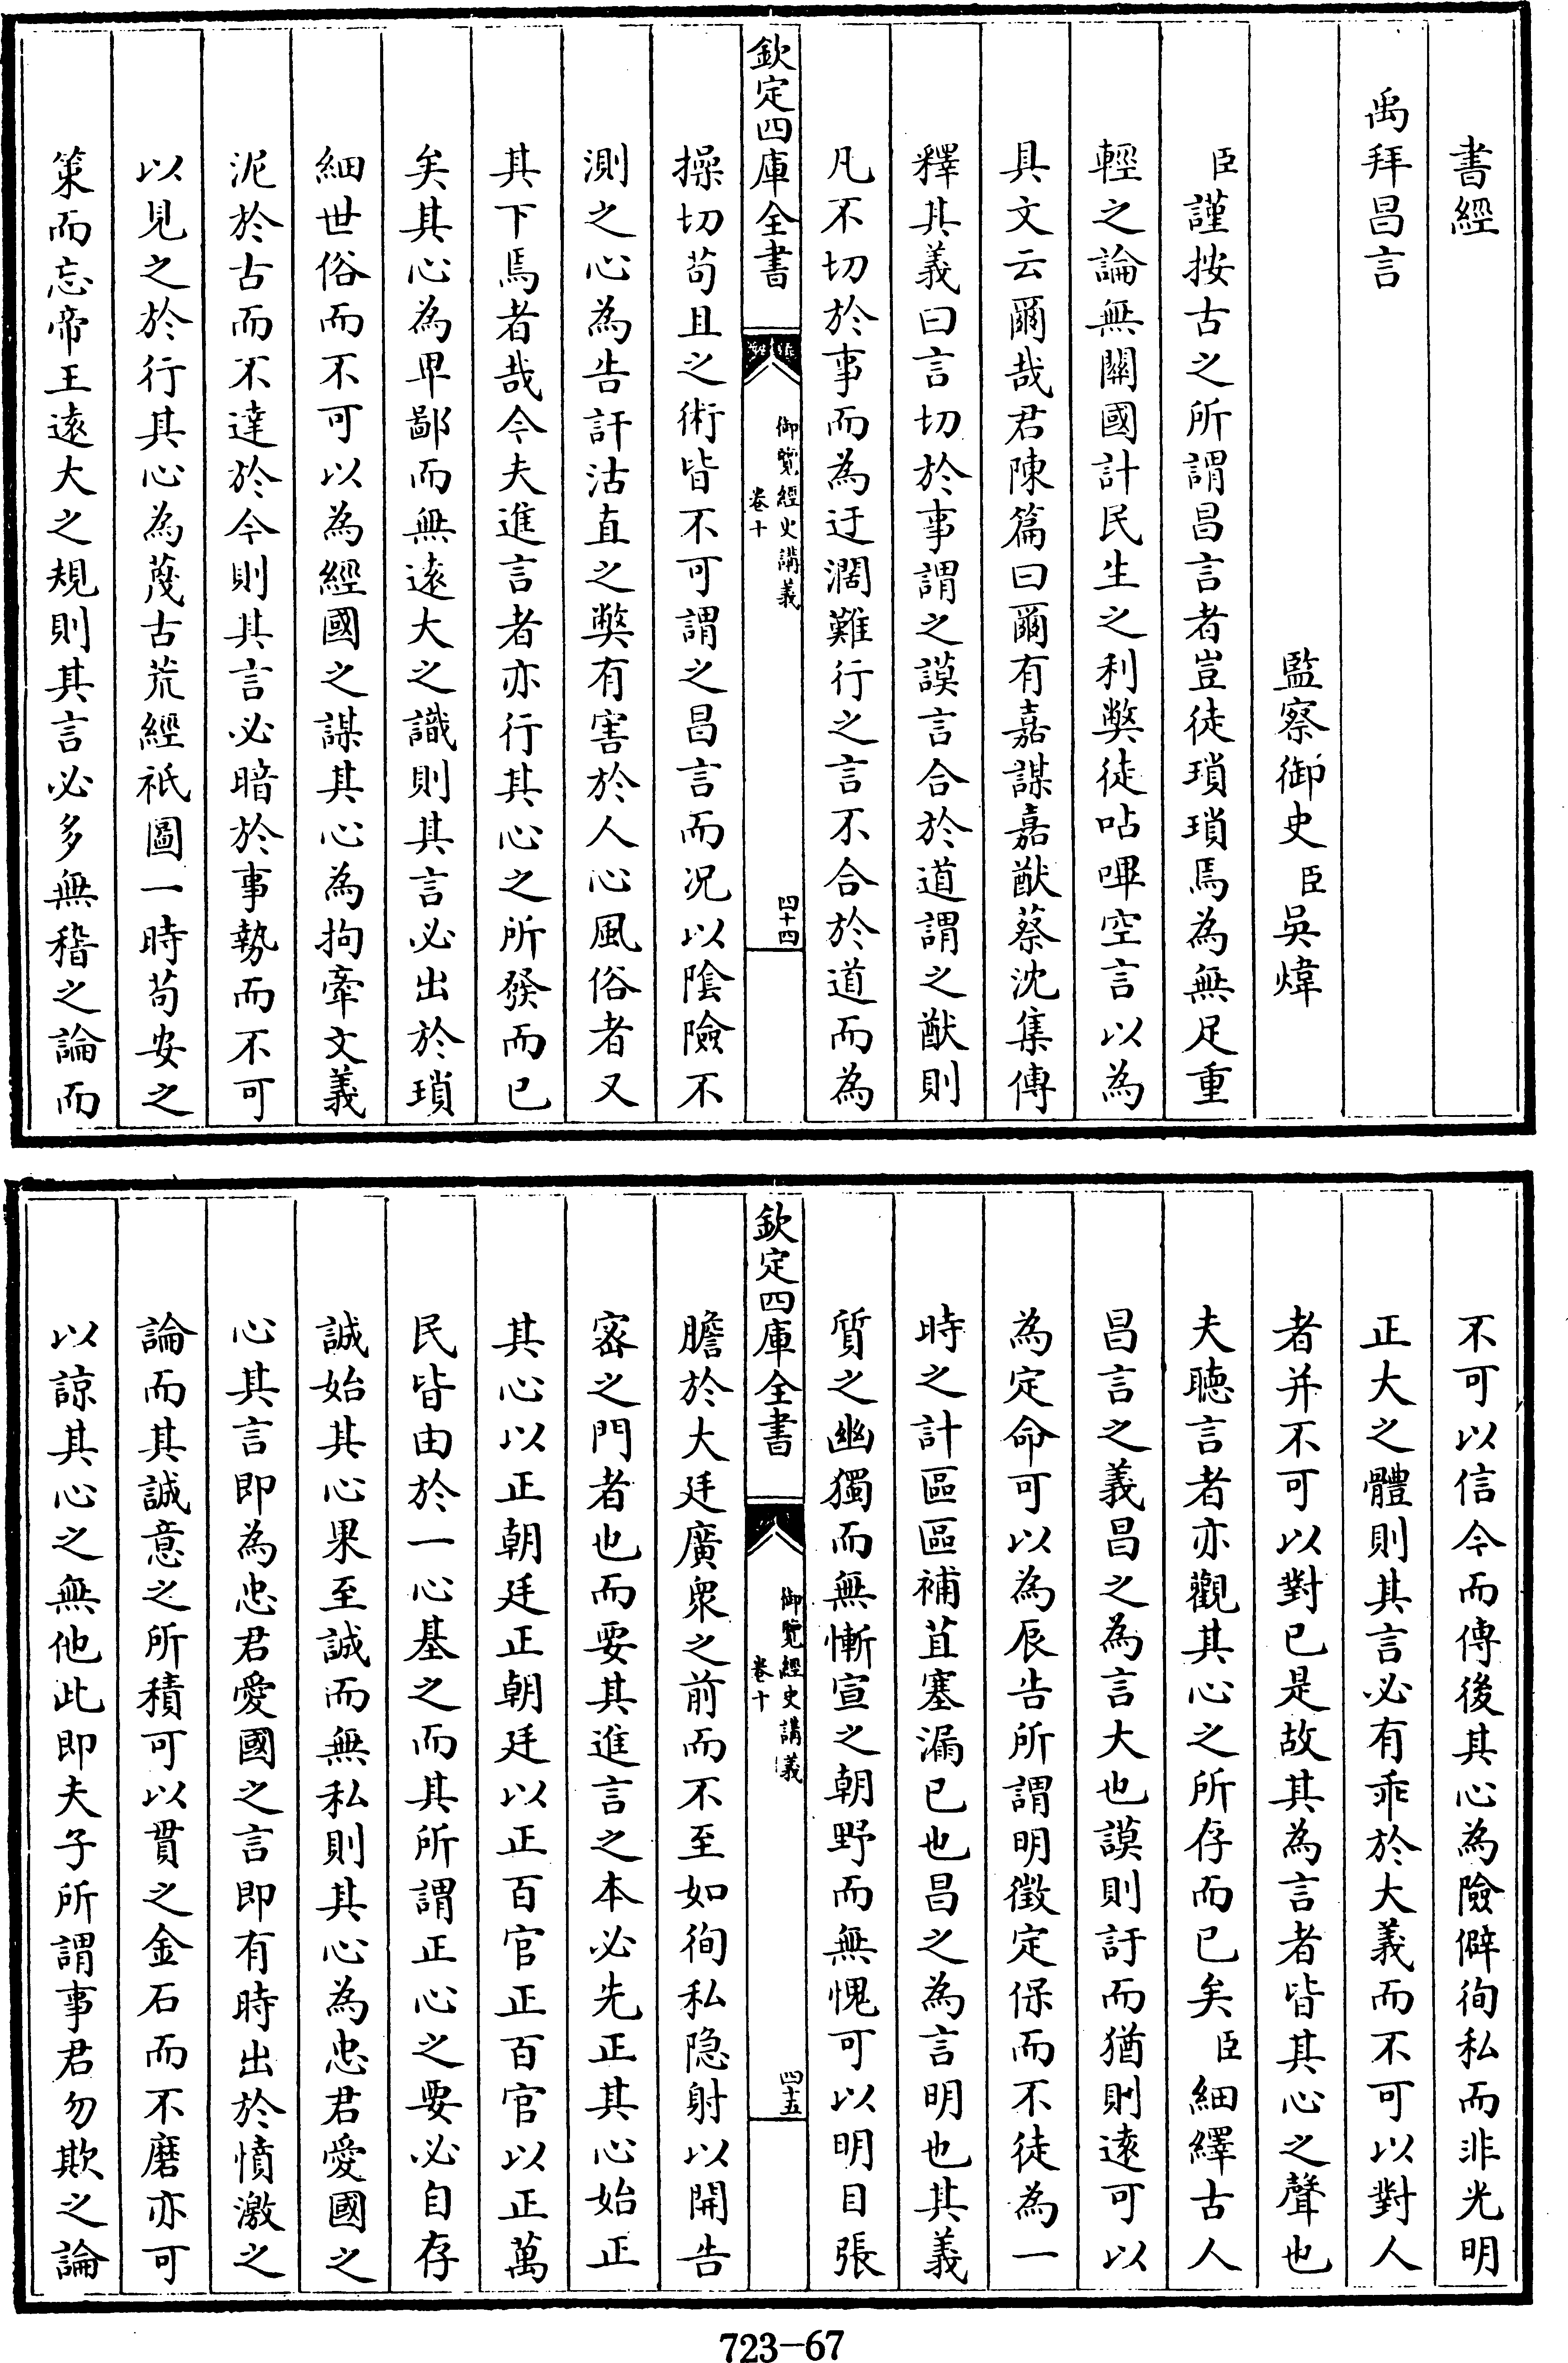 書經
禹拜昌言
監察御史臣吳煒
臣謹按古之所謂昌言者豈徒瑣瑣焉為無足重
輕之論無關國計民生之利獘徒呫嗶空言以為
具文云爾哉君陳篇曰爾有嘉謀嘉猷蔡沈集傳
釋其義曰言切於事謂之謨言合於道謂之猷則
凡不切於事而為迂濶難行之言不合於道而為
欽定四庫全書
御覽經史講義
卷十
四十四
操切苟且之術皆不可謂之昌言而况以隂險不
測之心為告訐沽直之獘有害於人心風俗者又
其下焉者哉今夫進言者亦行其心之所發而已
矣其心為卑鄙而無遠大之識則其言必出於瑣
細世俗而不可以為經國之謀其心為拘牽文義
泥於古而不達於今則其言必暗於事勢而不可
以見之於行其心為蔑古荒經祇圖一時苟安之
策而忘帝王遠大之規則其言必多無稽之論而
不可以信今而傳後其心為險僻徇私而非光明
正大之體則其言必有乖於大義而不可以對人
者并不可以對已是故其為言者皆其心之聲也
夫聽言者亦觀其心之所存而已矣臣細繹古人
昌言之義昌之為言大也謨則訏而猶則遠可以
為定命可以為辰告所謂明徵定保而不徒為一
時之計區區補苴塞漏已也昌之為言明也其義
質之幽獨而無慚宣之朝野而無愧可以明目張
欽定四庫全書
御覽經史講義
卷十
四十五
膽於大廷廣衆之前而不至如徇私隐射以開告
密之門者也而要其進言之本必先正其心始正
其心以正朝廷正朝廷以正百官正百官以正萬
民皆由於一心基之而其所謂正心之要必自存
誠始其心果至誠而無私則其心為忠君愛國之
心其言即為忠君愛國之言即有時出於憤激之
論而其誠意之所積可以貫之金石而不磨亦可
以諒其心之無他此即夫子所謂事君勿欺之論
723-67